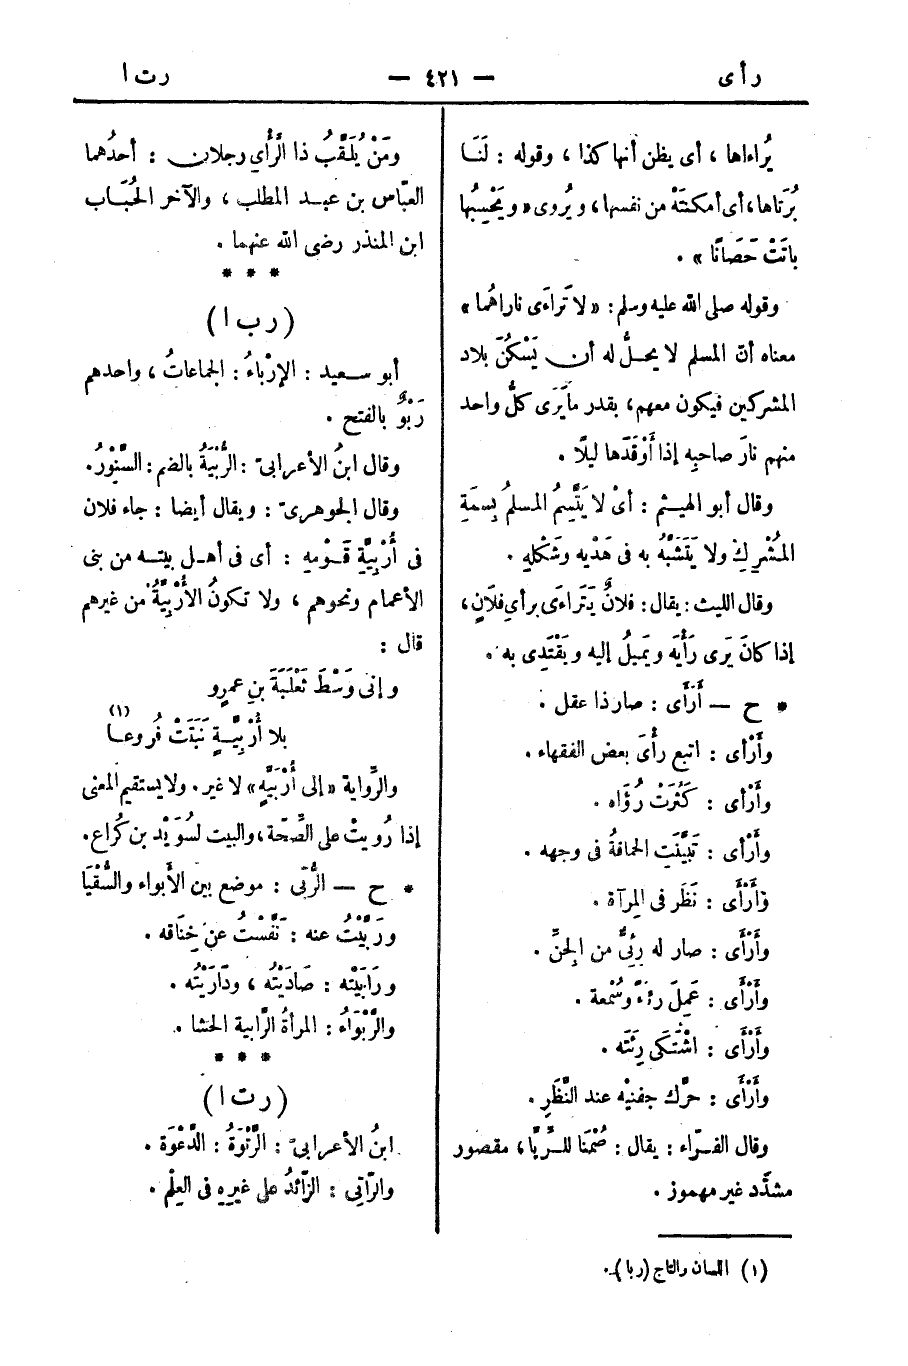 رأى — ٤٢١ — رت ا
يُراءاها ، أى يظن أنها كذا ، وقوله : لَنَا
بُرَتاها ، أى أمكنَتْه من نفسها ، ويُروى « ويَحْسِبُها
باتَتْ حَصَانًا » .
وقوله صلى الله عليه وسلم : « لا تَراءَى ناراهُما »
معناه أنّ المسلم لا يحلُّ له أن يَسْكُنَ بلاد
المشركين فيكون معهم ، بقدر ما يَرَى كلُّ واحد
منهم نارَ صاحبِه إذا أَوْقَدَها ليلًا .
وقال أبو الهيثم : أىْ لا يَتَّسِمُ المسلمُ بِسِمَةِ
المُشْرِكِ ولا يَتَشَبَّهُ به فى هَدْيِه وشَكْلِهِ .
وقال الليث : يقال : فلانٌ يَتَراءَى برأىِ فلانٍ ،
إذا كانَ يَرى رَأْيَه ويَمِيلُ إليه ويَقْتَدِى به .
* ح — أَرْأَى : صار ذا عقل .
وأَرْأى : اتبع رأْىَ بعض الفقهاء .
وأَرْأى : كَثُرَتْ رُؤَاه .
وأَرْأى : تَبَيَّنَتِ الحماقةُ فى وجهه .
وأَرْأَى : نَظَر فى المِرآة .
وأَرْأَى : صار له رِئِىٌّ من الِجنِّ .
وأَرْأَى : عَمِلَ رِئاءً وسُمْعة .
وأَرْأَى : اشْتَكَى رِئَتَه .
وأَرْأَى : حرَّك جفنيْه عند النَّظَرِ .
وقال الفرّاء : يقال : صُمْنَا للرُّيَّا ، مقصور
مشدَّد غير مهموز .
ومَنْ يُلَقَّبُ ذا الرَّأْىِ رجلان : أحدُهما
العبّاس بن عبد المطلب ، والآخر الحُبَاب
ابن المنذر رضى الله عنهما .
* * *
( رب ا )
أبو سعيد : الإِرْباءُ : الجماعاتُ ، واحدهم
رَبْوٌ بالفتح .
وقال ابنُ الأعرابىّ : الرُّبْيَةُ بالضم : السِّنَّوْرُ .
وقال الجوهرىّ : ويقال أيضا : جاء فلان
فى أُرْبِيَّةِ قَوْمِهِ : أى فى أهل بيته من بنى
الأعمام ونحوهم ، ولا تكونُ الأُرْبِيَّةُ من غيرهم
قال :
وإنى وَسْطَ ثَعْلَبَةَ بنِ عمرٍو
بلا أُرْبِيَّةٍ نَبَتَتْ فُروعا (١)
والرِّواية « إلى أُرْبِيَّةٍ » لا غير . ولا يستقيم المعنى
إذا رُويتْ على الصِّحّة ، والبيت لسُوَيْد بن كُراع .
* ح — الرُّبَى : موضع بين الأَبواء والسُّقْيَا
ورَبَّيْتُ عنه : نَفَّسْتُ عن خِنَاقه .
ورَابَيْتُه : صَادَيْتُه ، ودَارَيْتُه .
والرَّبْوَاءُ : المرأةُ الرَّابية الحشا .
* * *
( رت ا )
ابنُ الأعرابىّ : الرَّتْوَةُ : الدَّعْوَة .
والرَّاتِى : الزّائدُ على غيرِهِ فى العِلْم .
(١) اللسان والتاج (ربا) .